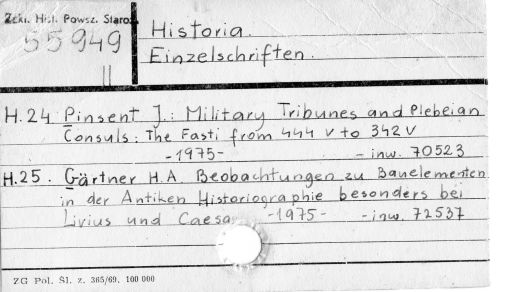 Zakł. Hist. Powsz. Staroż.
55949
II
Historia.
Einzelschriften.
H.24 Pinsent J.: Military Tribunes and Plebeian
Consuls: The Fasti from 444 V to 342 V
-1975- - inw. 70523
H.25. Gärtner H.A. Beobachtungen zu Bauelementen
in der Antiken Historiographie besonders bei
Livius und Caesa -1975- - inw. 72537
ZG Pol. Śl. z. 365/69. 100 000